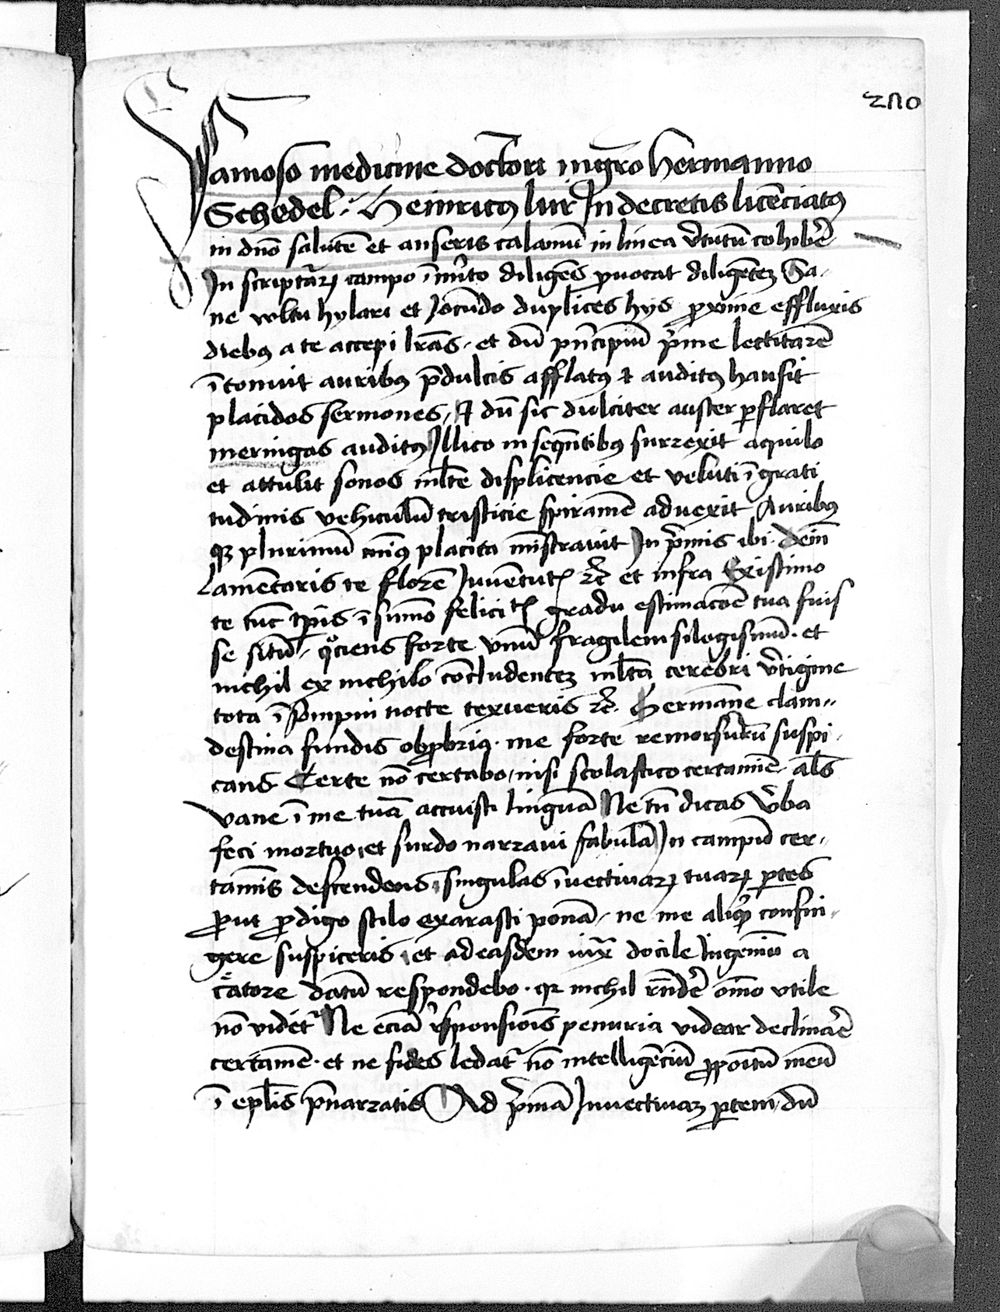 270
Famoso medicine doctori mgro hermanno
Schedel. Heinricus lur In decretis licenciatus
in dno salutem et anseris calamum in linea virtutum cohibere
In scripturarum campo inuito diligens prouocat diligentem Sa-
ne vultu hylari et Iocundo duplices hys proxime effluxis
diebus a te accepi lras. et dum principium prime lectitarem
intonuit auribus predulcis afflatus et auditus hausit
placidos sermones, Et dum sic dulciter auster perflaret
meringas auditus Illico in sequentibus surrexit aquilo
et attulit sonos multe displicencie et veluti ingrati
tudinis vehiculum tristicie spiramen aduexit Auribus
que plurimum minus placita ministrauit In primis ibi. dein
Lamentaris te florem Iuuentutis etc et infra Existimo
te tunc temporis in summo felicitatis gradu estimacione tua fuis
se situm. quociens forte vnum fragilem silogismum. et
nichil ex nichilo concludentem multa cerebri vertigine
tota insompni nocte texueris etc. Germane clam-
destina fundis obprobria. me forte remorsurum suspi-
cans Certe non certabo, nisi scolastico certamine. als
vane in me tuam accuisti linguam Ne tamen dicas verba
feci mortuo, et surdo narraui fabulam In campum cer-
taminis descendens, singulas inuectiuarum tuarum partes
prout prodigo stilo exarasti ponam, ne me aliquid confin-
gere suspiceris, et ad easdem iuxta docile Ingenium a
creatore datum respondebo. quia nichil respondere omnino vtile
non videtur Ne eciam responsionis penuria videar declinare
certamen. et ne fides ledatur non intelligencium propositum meum
in epistolis prenarratis Ad primam Inuectiuarum partem, dum